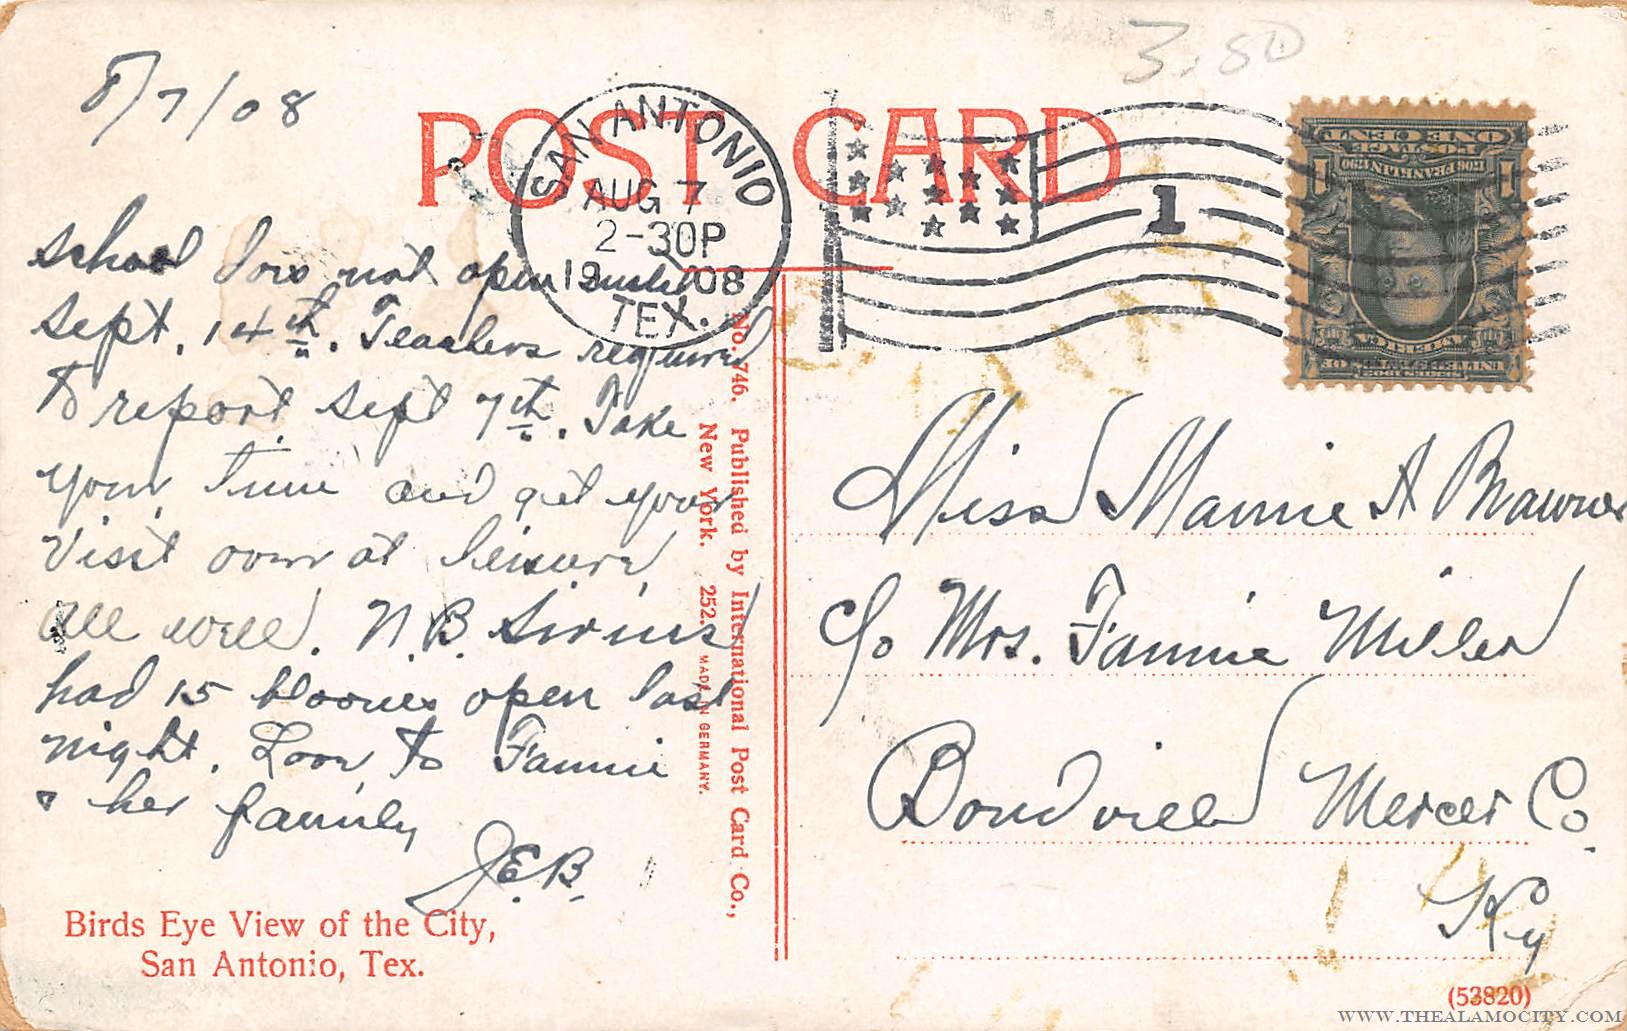 8/7/08
3.50
POST CARD
SAN ANTONIO
AUG 7
2-30P
1908
TEX.
1
ONE CENT
POSTAGE
1706 FRANKLIN 1790
SERIES 1902
UNITED STATES OF
AMERICA
school does not open until
Sept. 14th. Teachers required
to report Sept 7th. Take
your time and get your
visit over at leisure
all well. N.B. Sirius
had 15 bloomes open last
night. Love to Fannie
& her family
J.E.B.
Birds Eye View of the City,
San Antonio, Tex.
No. 746. Published by International Post Card Co.,
New York. 252. MADE IN GERMANY.
Miss Mamie A Brawner
c/o Mrs. Fannie Miller
Bondville Mercer Co.
Ky
(53820)
WWW.THEALAMOCITY.COM